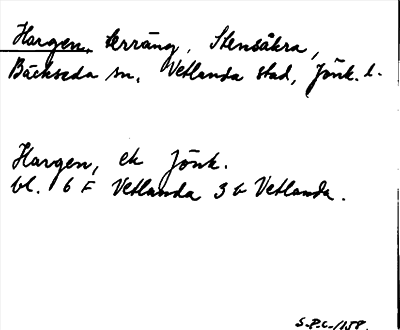 Hargen, terräng, Stensåkra,
Bäckseda sn, Vetlanda stad, Jönk. l.
Hargen, ek Jönk.
bl. 6 F Vetlanda 3 b Vetlanda.
S.P.C. /158.